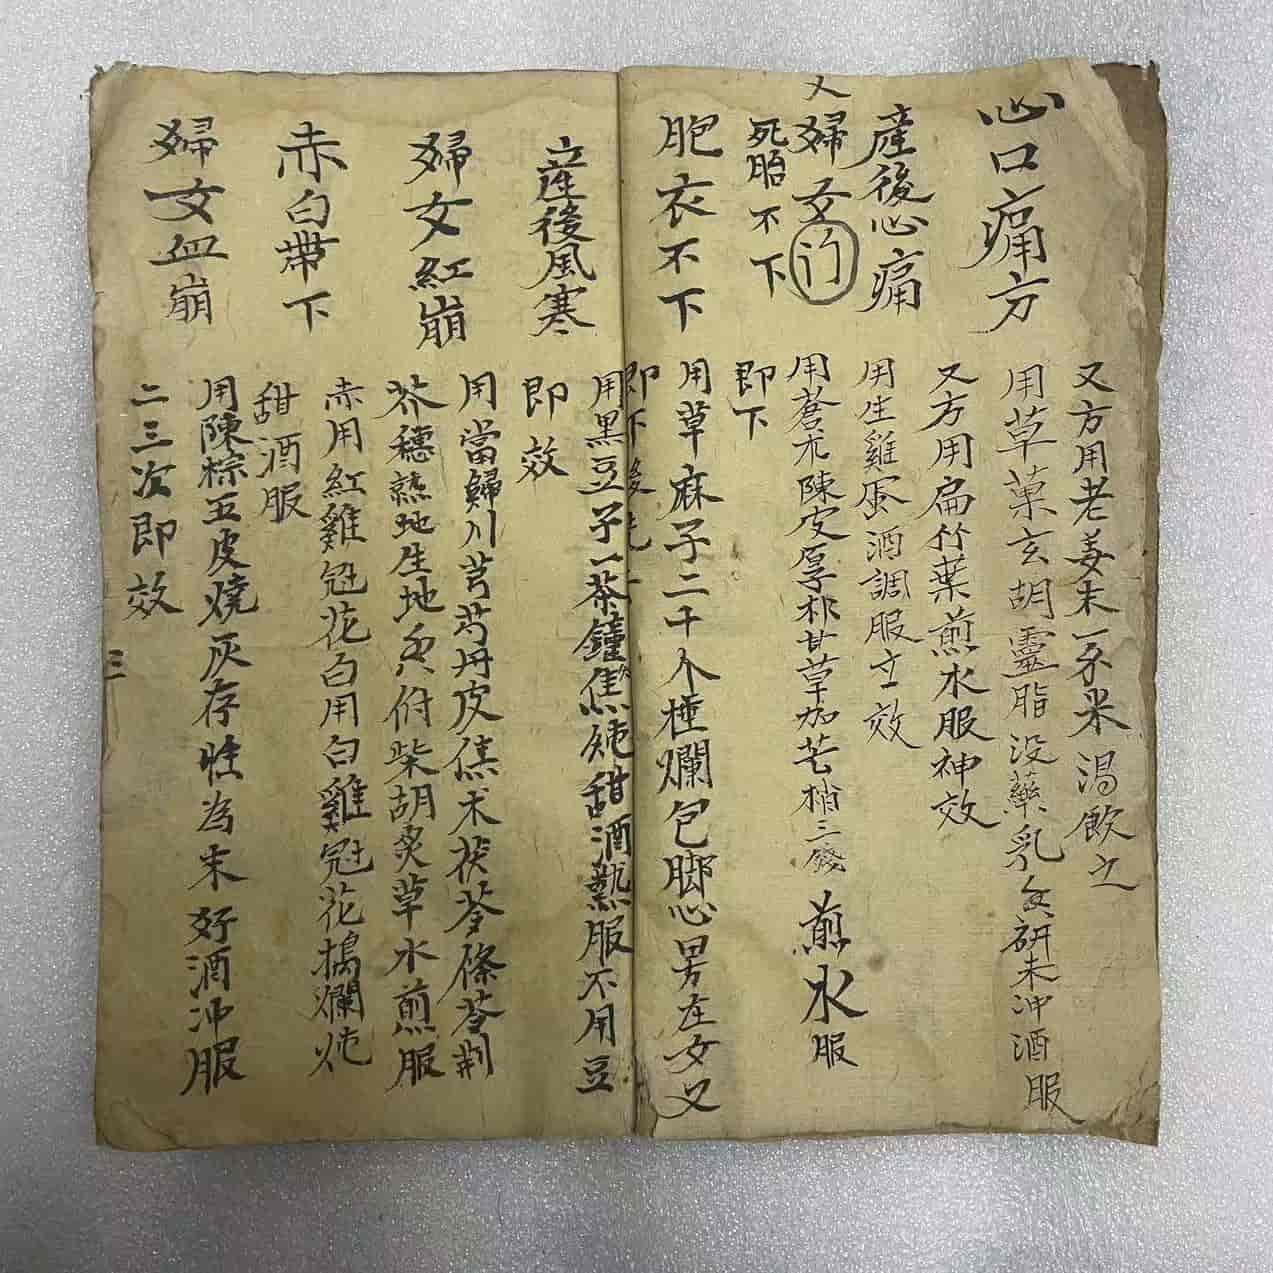 又方用老姜末一不米湯飲之
心口痛方
用草菓玄胡靈脂没藥乳香研末冲酒服
又方用扁竹葉煎水服神效
產後心痛
用生雞蛋酒調服立效
又婦女门
死胎不下
用蒼朮陳皮厚朴甘草加芒梢三錢煎水服
即下
胞衣不下
用草麻子二千个搥爛包脚心男左女又
即下後洗
產後風寒
用黑豆子一茶鐘焦炖甜酒熱服不用豆
即效
婦女紅崩
用當歸川芎芍丹皮焦术茯苓條苓荆
芥穗熟地生地香附柴胡炙草水煎服
赤白帶下
赤用紅雞冠花白用白雞冠花搗爛炖
甜酒服
婦女血崩
用陳棕五皮燒灰存性為末好酒冲服
二三次即效
三